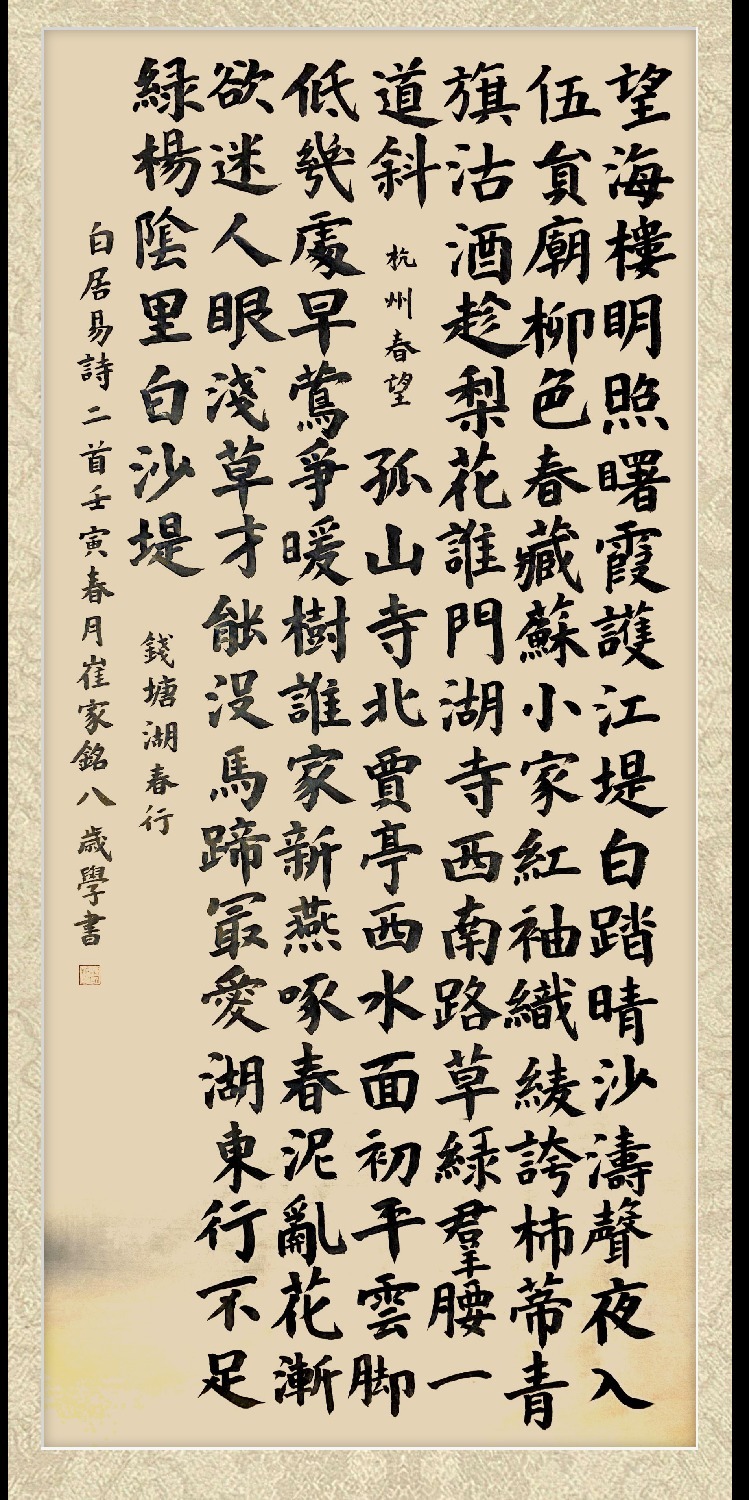 望海樓明照曙霞護江堤白踏晴沙濤聲夜入
伍員廟柳色春藏蘇小家紅袖織綾誇柿蒂青
旗沽酒趁梨花誰門湖寺西南路草綠羣腰一
道斜 杭州春望 孤山寺北賈亭西水面初平雲脚
低幾處早鶯爭暖樹誰家新燕啄春泥亂花漸
欲迷人眼淺草才能没馬蹄冣愛湖東行不足
緑楊陰里白沙堤 錢塘湖春行
白居易詩二首壬寅春月崔家銘八歲學書